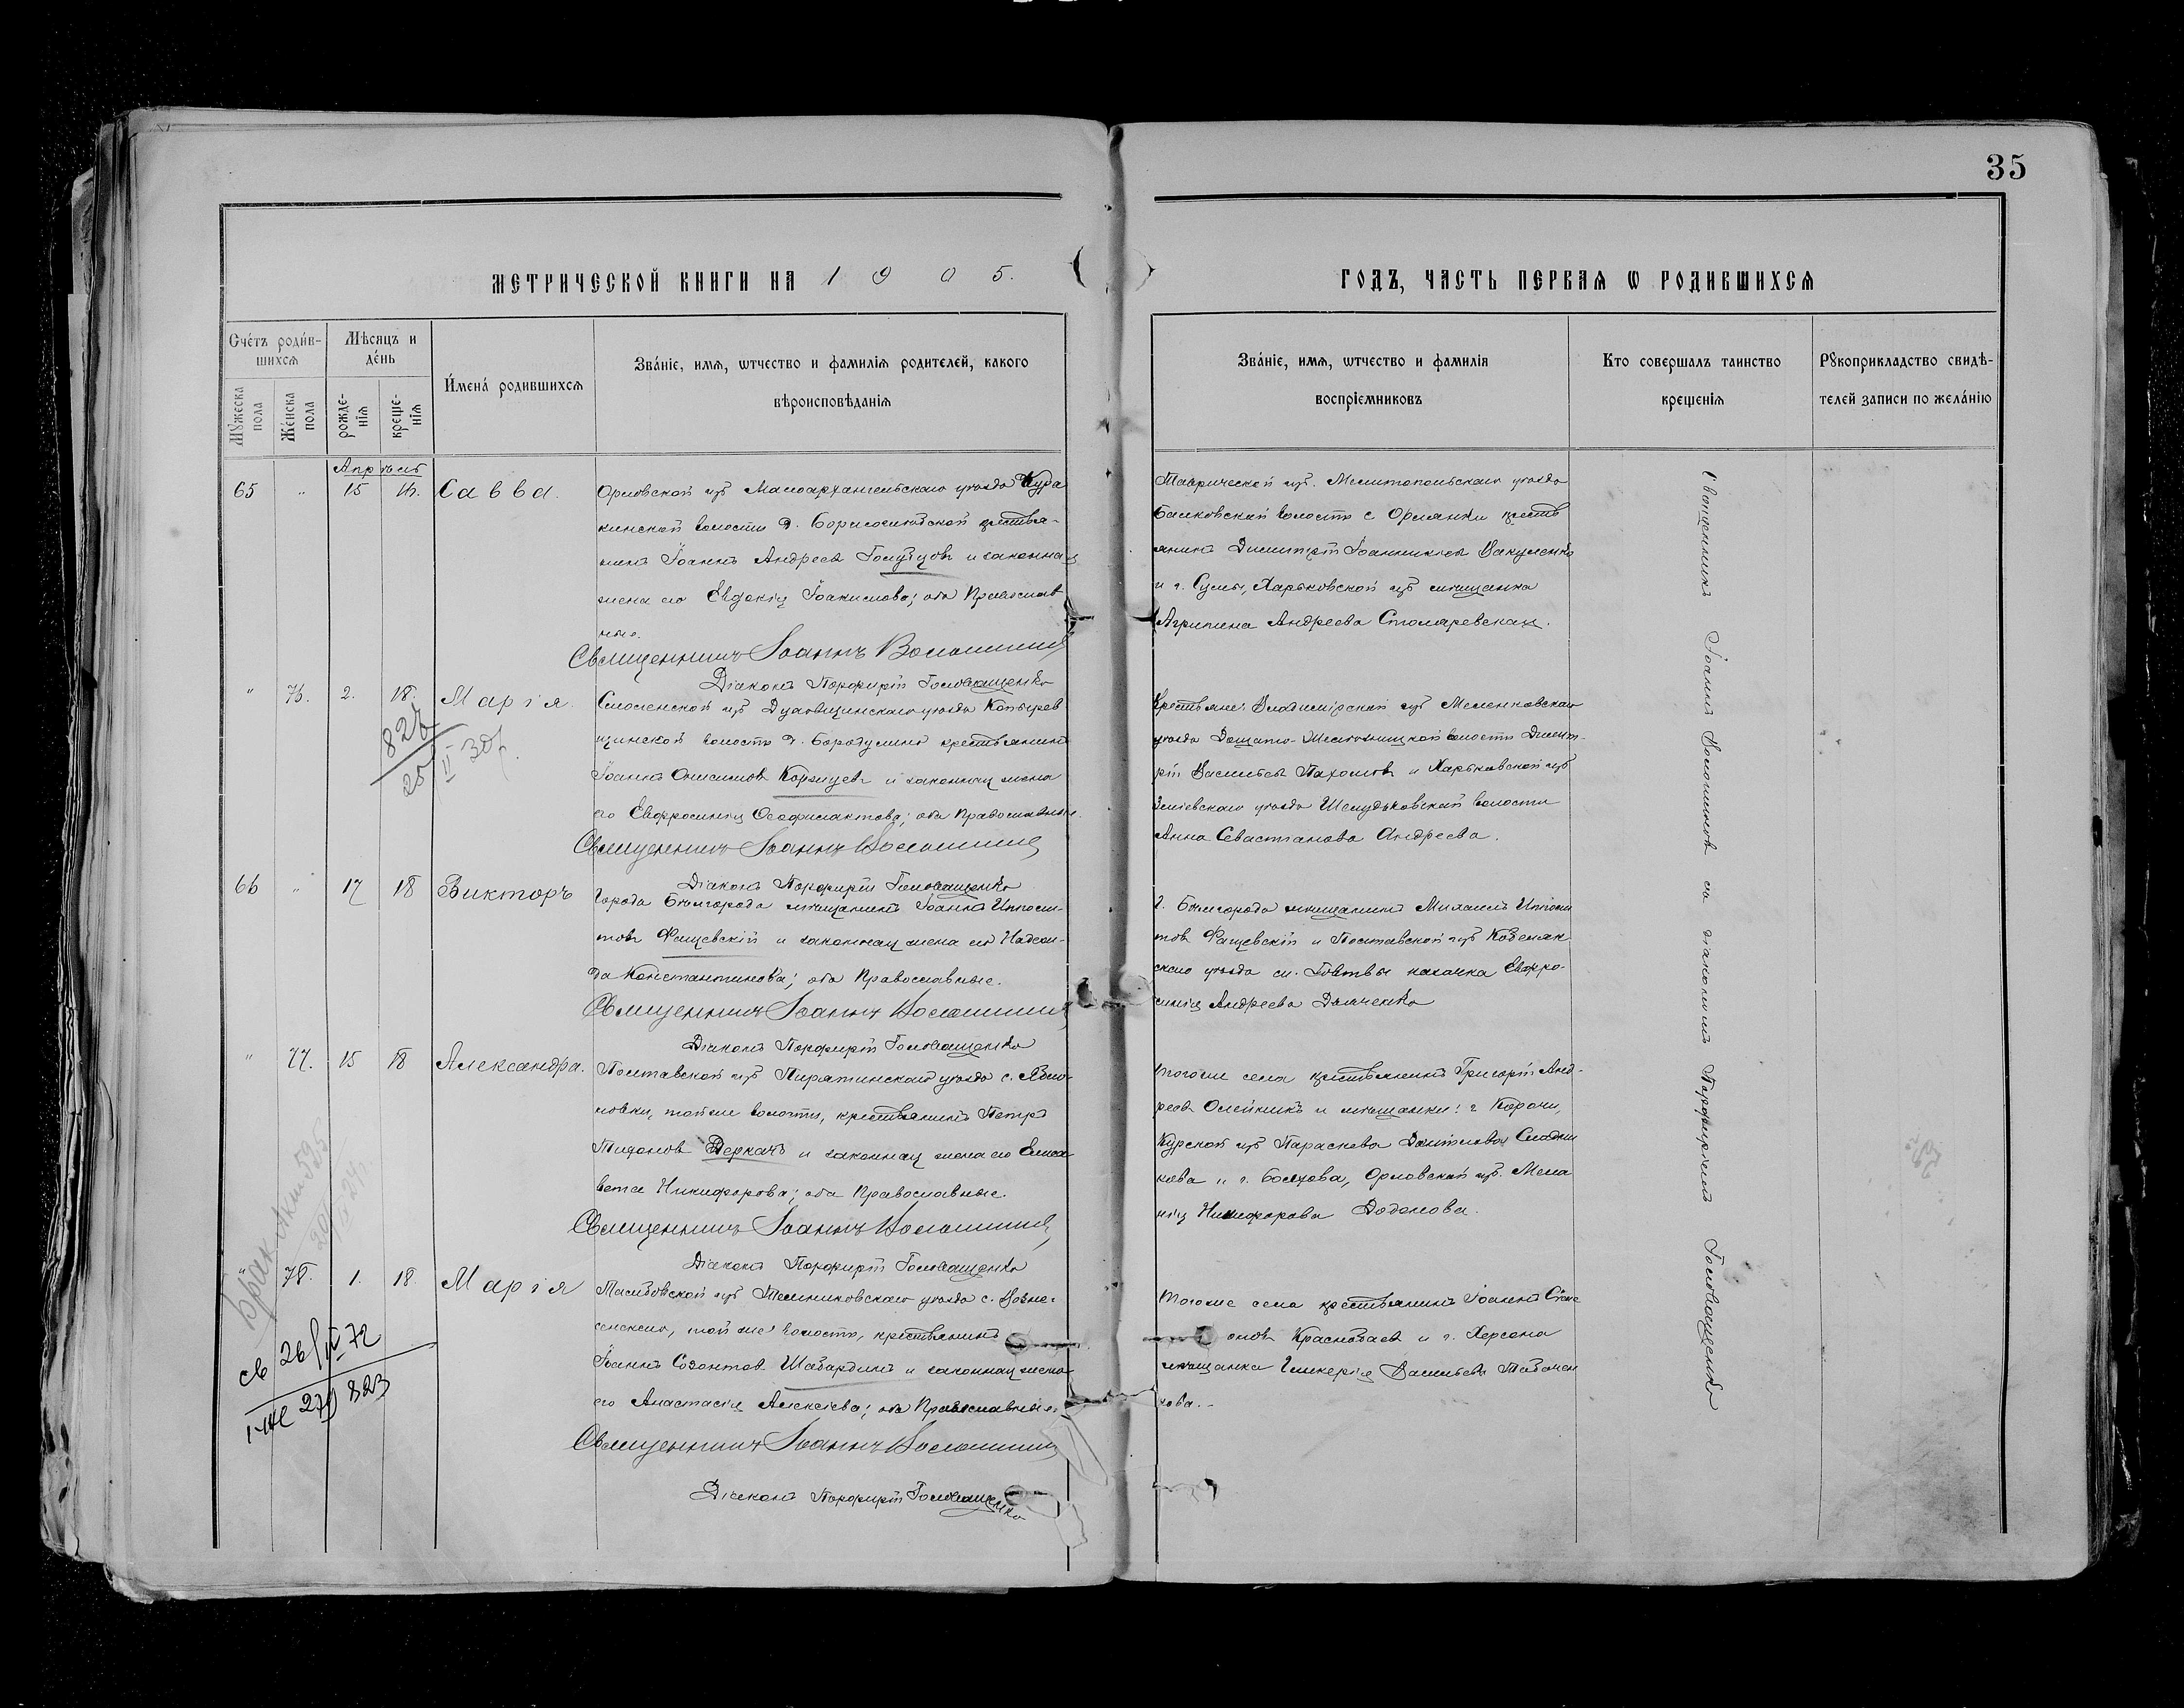 35
МЕТРИЧЕСКОЙ КНИГИ НА 1905.
ГОДЪ, ЧАСТЬ ПЕРВАЯ Ѡ РОДИВШИХСЯ
Счетъ родив-
шихся
Мужеска пола
Женска пола
Мѣсяцъ и
день
рожде-
нія
креще-
нія
Имена родившихся
Званіе, имя, ѡтчество и фамилія родителей, какого
вѣроисповѣданія
Званіе, имя, ѡтчество и фамилія
воспріемниковъ
Кто совершалъ таинство
крещенія
Рукоприкладство свидѣ-
телей записи по желанію
Апрѣль
65 " 15 16. Савва.
Орловской губ Малоархангельскаго уѣзда Кура
кинской волости д.
нинъ Іоаннъ Андреевъ Голубцовъ и законная
жена его Евдокія Іоакимова; оба Православ
ные.
Священникъ Іоаннъ Волошинов
Діаконъ Порфирій Головащенко
Таврической губ. Мелитопольскаго уѣзда
Балковской волости с. Орлянки крестья
янинъ Димитрій Іоанникіевъ Вакуленко
и г. Сумы, Харьковской губ мѣщанка
Агрипина Андреева Столаревская.
" 76. 2. 18. Марія.
Смоленской губ Духовщинскаго уѣзда Копырев
щинской волости д. Бородулино крестьянинъ
Іоаннъ Онисимовъ Корзщевъ и законная жена
его Евфросинія Феофилактова; оба Православные.
Священникъ Іоаннъ Волошинов
Діаконъ Порфирій Головащенко
Крестьяне: Владимірской губ Меленковскаго
уѣзда Дощато-Желѣзницкой волости Димит-
рій Васильевъ Пахомовъ и Харьковской губ
Зміевскаго уѣзда Шелудьковской волости
Анна Севастіанова Андреева.
66 " 17 18 Викторъ
Города Бѣлгорода мѣщанинъ Іоаннъ Ипполи-
товъ Фащевскій и законная жена его Надеж-
да Константинова; оба Православные.
Священникъ Іоаннъ Волошинов
Діаконъ Порфирій Головащенко
г. Бѣлгорода мѣщанинъ Михаилъ Ипполи
товъ Фащевскій и Полтавской губ Кобеляк
скаго уѣзда м. казачка Евфро-
синія Андреева Дьяченко
" 77. 15 18 Александра.
Полтавской губ Пирятинскаго уѣзда с.
новки, той же волости, крестьянинъ Петръ
Тихоновъ Деркачъ и законная жена его Елиса
вета Никифорова; оба Православные.
Священникъ Іоаннъ Волошинов
Діаконъ Порфирій Головащенко
Того же села крестьянинъ Григорій Анд-
реевъ Олейникъ и мѣщанки: г. Корочи,
Курской губ Параскева Даніилова Сладки
кова и г. Болхова, Орловской губ. Мела
нія Никифорова Додонова.
" 78. 1. 18. Марія
Тамбовской губ Темниковскаго уѣзда с. Возне-
сенскаго, той же волости, крестьянинъ
Іоаннъ Созонтовъ Шабардинъ и законная жена
его Анастасія Алексѣева; оба Православные.
Священникъ Іоаннъ Волошинов
Діаконъ Порфирій Головащенко
Того же села крестьянинъ Іоаннъ
оновъ Краснобаевъ и г. Херсона
мѣщанка Гликерія Васильева Табачен
кова.
Священникъ Іоаннъ Волошиновъ съ діакономъ Порфиріемъ Головащенко
Брак
св 26/IV 72
823